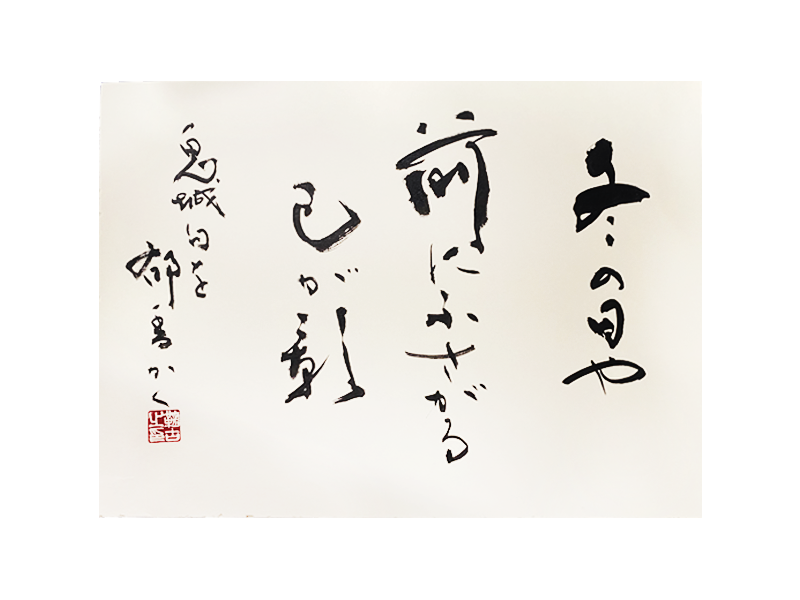 冬の日や
前にふさがる
己が影
鬼城句を
郁香かく